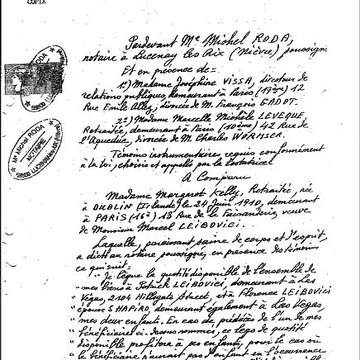 COPIE
Pardevant Me Michel RODA,
notaire à Lucenay les Aix (Nièvre) soussigné
Et en présence de =
1º) Madame Joséphine VISSA, directeur de
relations publiques, demeurant à Paris (17º) 12
Rue Emile Allez, divorcée de M. François GADOT.
2º) Madame Marcelle Michèle LEVEQUE,
Retraitée, demeurant à Paris (10ème) 42 Rue de
l'Aqueduc, divorcée de M. Charles WORMSER.
Témoins instrumentaires requis conformément
à la loi, choisis et appelés par le Notaire
A Comparu
Madame Margaret Kelly, Retraitée, née
à DUBLIN (Irlande) le 24 Juin 1910, demeurant
à PARIS (16º) 13 Rue de la Faisanderie, veuve
de Monsieur Marcel LEIBOVICI.
Laquelle, paraissant saine de corps et d'esprit,
a dicté au notaire soussigné, en présence des témoins
ce qui suit =
"Je lègue la quotité disponible de l'ensemble de
mes Biens à Patrick LEIBOVICI, demeurant à Las
Vegas, 2104 Hillgate Street, et à Florence LEIBOVICI
épouse SHAPIRO, demeurant également à Las Vegas
mes deux enfants. En cas de prédécès de l'un de mes
bénéficiaires ci-dessus nommés, ce legs de quotité
disponible profitera à ses enfants, pour le cas où
le bénéficiaire n'aurait pas d'enfant en l'occurrence